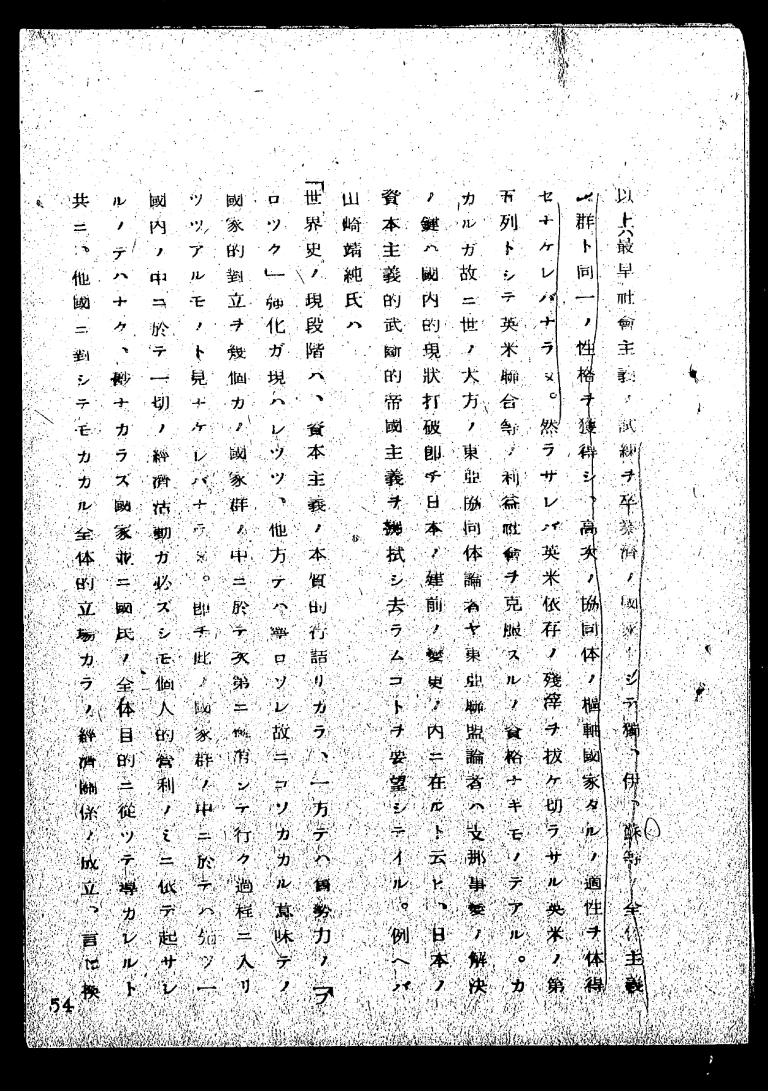 以上ハ最早社會主義ノ試練ヲ卒業濟ノ國家トシテ獨、伊、蘇等ノ全体主義
ノ群ト同一ノ性格ヲ獲得シ、高次ノ協同体ノ樞軸國家タルノ適性ヲ体得
セナケレバナラヌ。然ラサレバ英米依存ノ残滓ヲ拔ケ切ラサル英米ノ第
五列トシテ英米聯合等ノ利益社會ヲ克服スルノ資格ナキモノデアル。カ
カルガ故ニ世ノ大方ノ東亞協同体論者ヤ東亞聯盟論者ハ支那事變ノ解決
ノ鍵ハ國内的現狀打破即チ日本ノ建前ノ變更ノ内ニ在ルト云ヒ、日本ノ
資本主義的武斷的帝國主義ヲ拂拭シ去ラムコトヲ要望シテイル。例ヘバ
山崎靖純氏ハ
「世界史ノ現段階ハ、資本主義ノ本質的行詰リカラ、一方デハ舊勢力ノ「ブ
ロツク」強化ガ現ハレツツ、他方デハ寧ロソレ故ニコソカカル意味デノ
國家的對立ヲ幾個カノ國家群ノ中ニ於テ次第ニ シテ行ク過程ニ入リ
ツツアルモノト見ナケレバナラヌ。即チ此ノ國家群ノ中ニ於テハ先ツ一
國内ノ中ニ於テ一切ノ經濟活動ガ必ズシモ個人的營利ノミニ依テ起サレ
ルノデハナク、尠ナカラズ國家並ニ國民ノ全体目的ニ從ツテ導カレルト
共ニ、他國ニ對シテモカカル全体的立場カラノ經濟關係ノ成立、言ヒ換
54